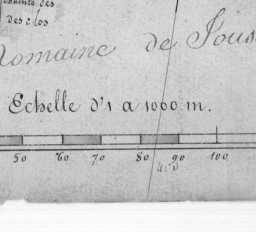 des
Des clos
Domaine de Jous
Echelle d'1 a 1000 m.
50 60 70 80 90 100